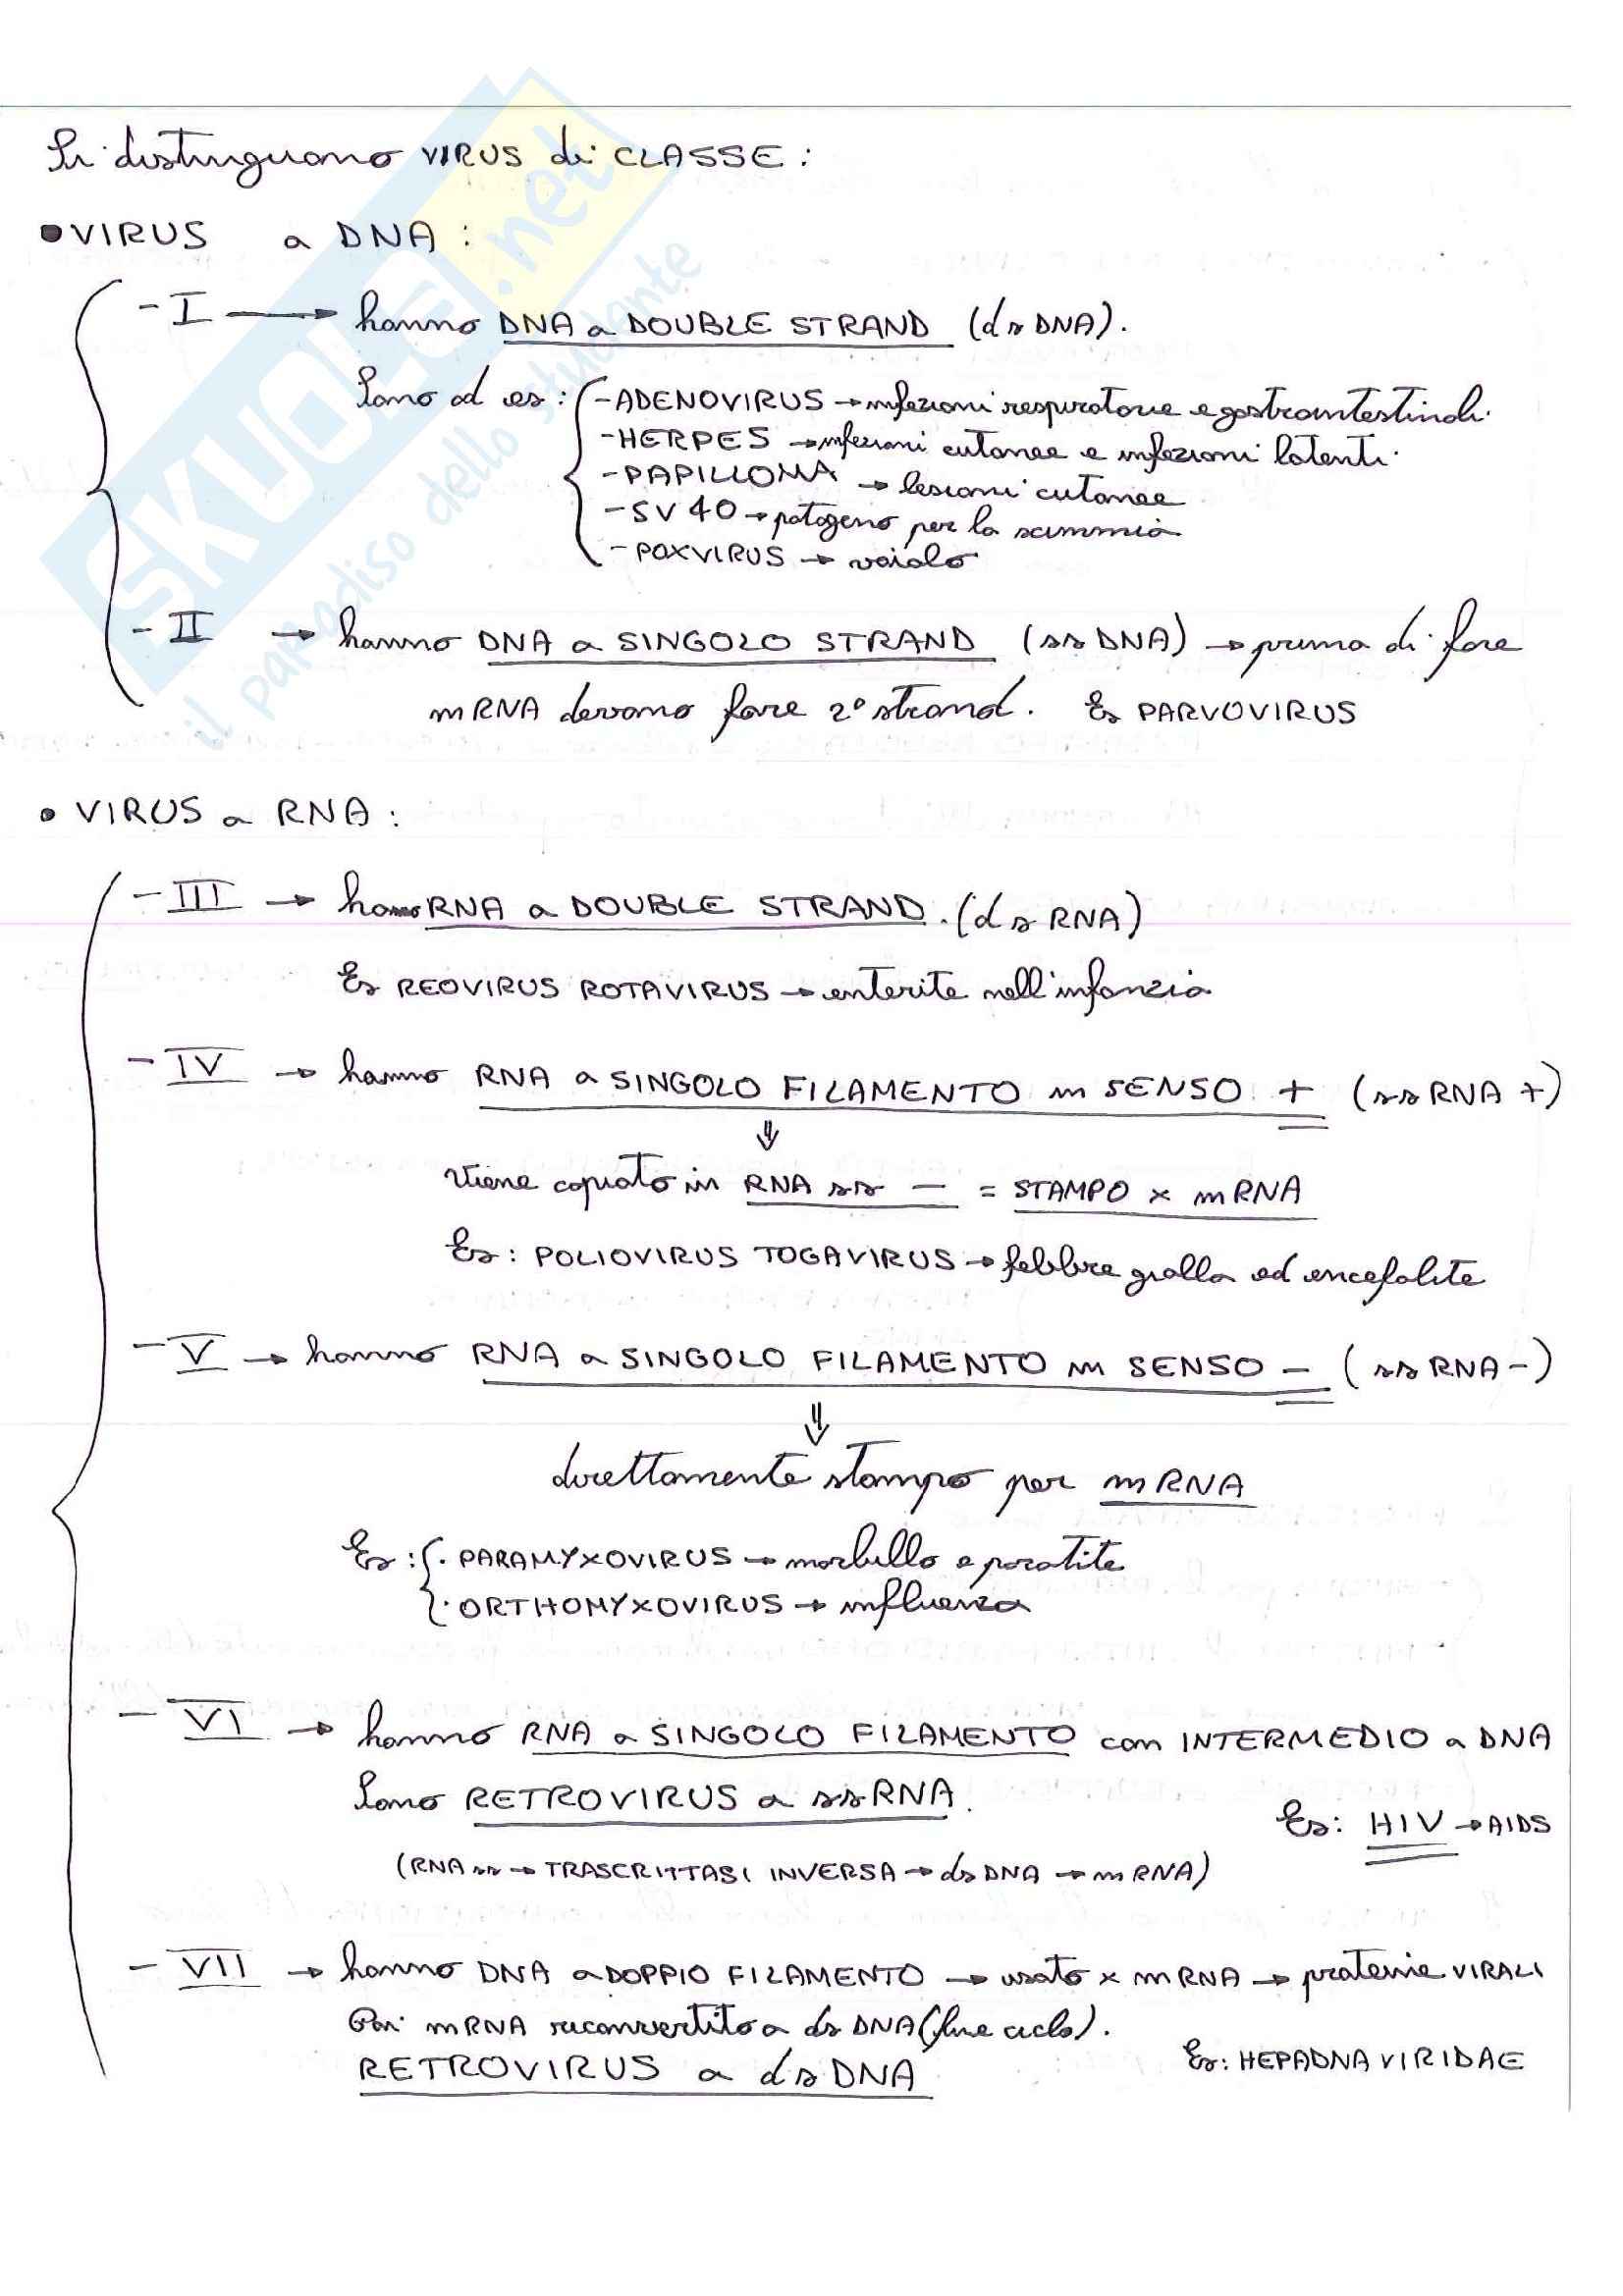 Si distinguono VIRUS di CLASSE:
•VIRUS a DNA:
- I → hanno DNA a DOUBLE STRAND (ds DNA).
Sono ad es: -ADENOVIRUS → infezioni respiratorie e gastrointestinali.
-HERPES → infezioni cutanee e infezioni latenti.
-PAPILLOMA → lesioni cutanee
-SV 40 → patogeno per la scimmia
-POXVIRUS → vaiolo
- II → hanno DNA a SINGOLO STRAND (ss DNA) → prima di fare
mRNA devono fare 2° strand. Es PARVOVIRUS
• VIRUS a RNA:
- III → hanno RNA a DOUBLE STRAND. (ds RNA)
Es REOVIRUS ROTAVIRUS → enterite nell'infanzia
- IV → hanno RNA a SINGOLO FILAMENTO in SENSO + (ss RNA +)
⇓
Viene copiato in RNA ss - = STAMPO x mRNA
Es: POLIOVIRUS TOGAVIRUS → febbre gialla ed encefalite
- V → hanno RNA a SINGOLO FILAMENTO in SENSO - (ss RNA -)
⇓
direttamente stampo per mRNA
Es: • PARAMYXOVIRUS → morbillo e parotite
• ORTHOMYXOVIRUS → influenza
- VI → hanno RNA a SINGOLO FILAMENTO con INTERMEDIO a DNA
Sono RETROVIRUS a ssRNA.
Es: HIV → AIDS
(RNA ss → TRASCRITTASI INVERSA → ds DNA → mRNA)
- VII → hanno DNA a DOPPIO FILAMENTO → usato x mRNA → proteine VIRALI
Poi mRNA riconvertito a ds DNA (fine ciclo).
RETROVIRUS a ds DNA
Es: HEPADNAVIRIDAE
SKUOLA.net
il paradiso dello studente